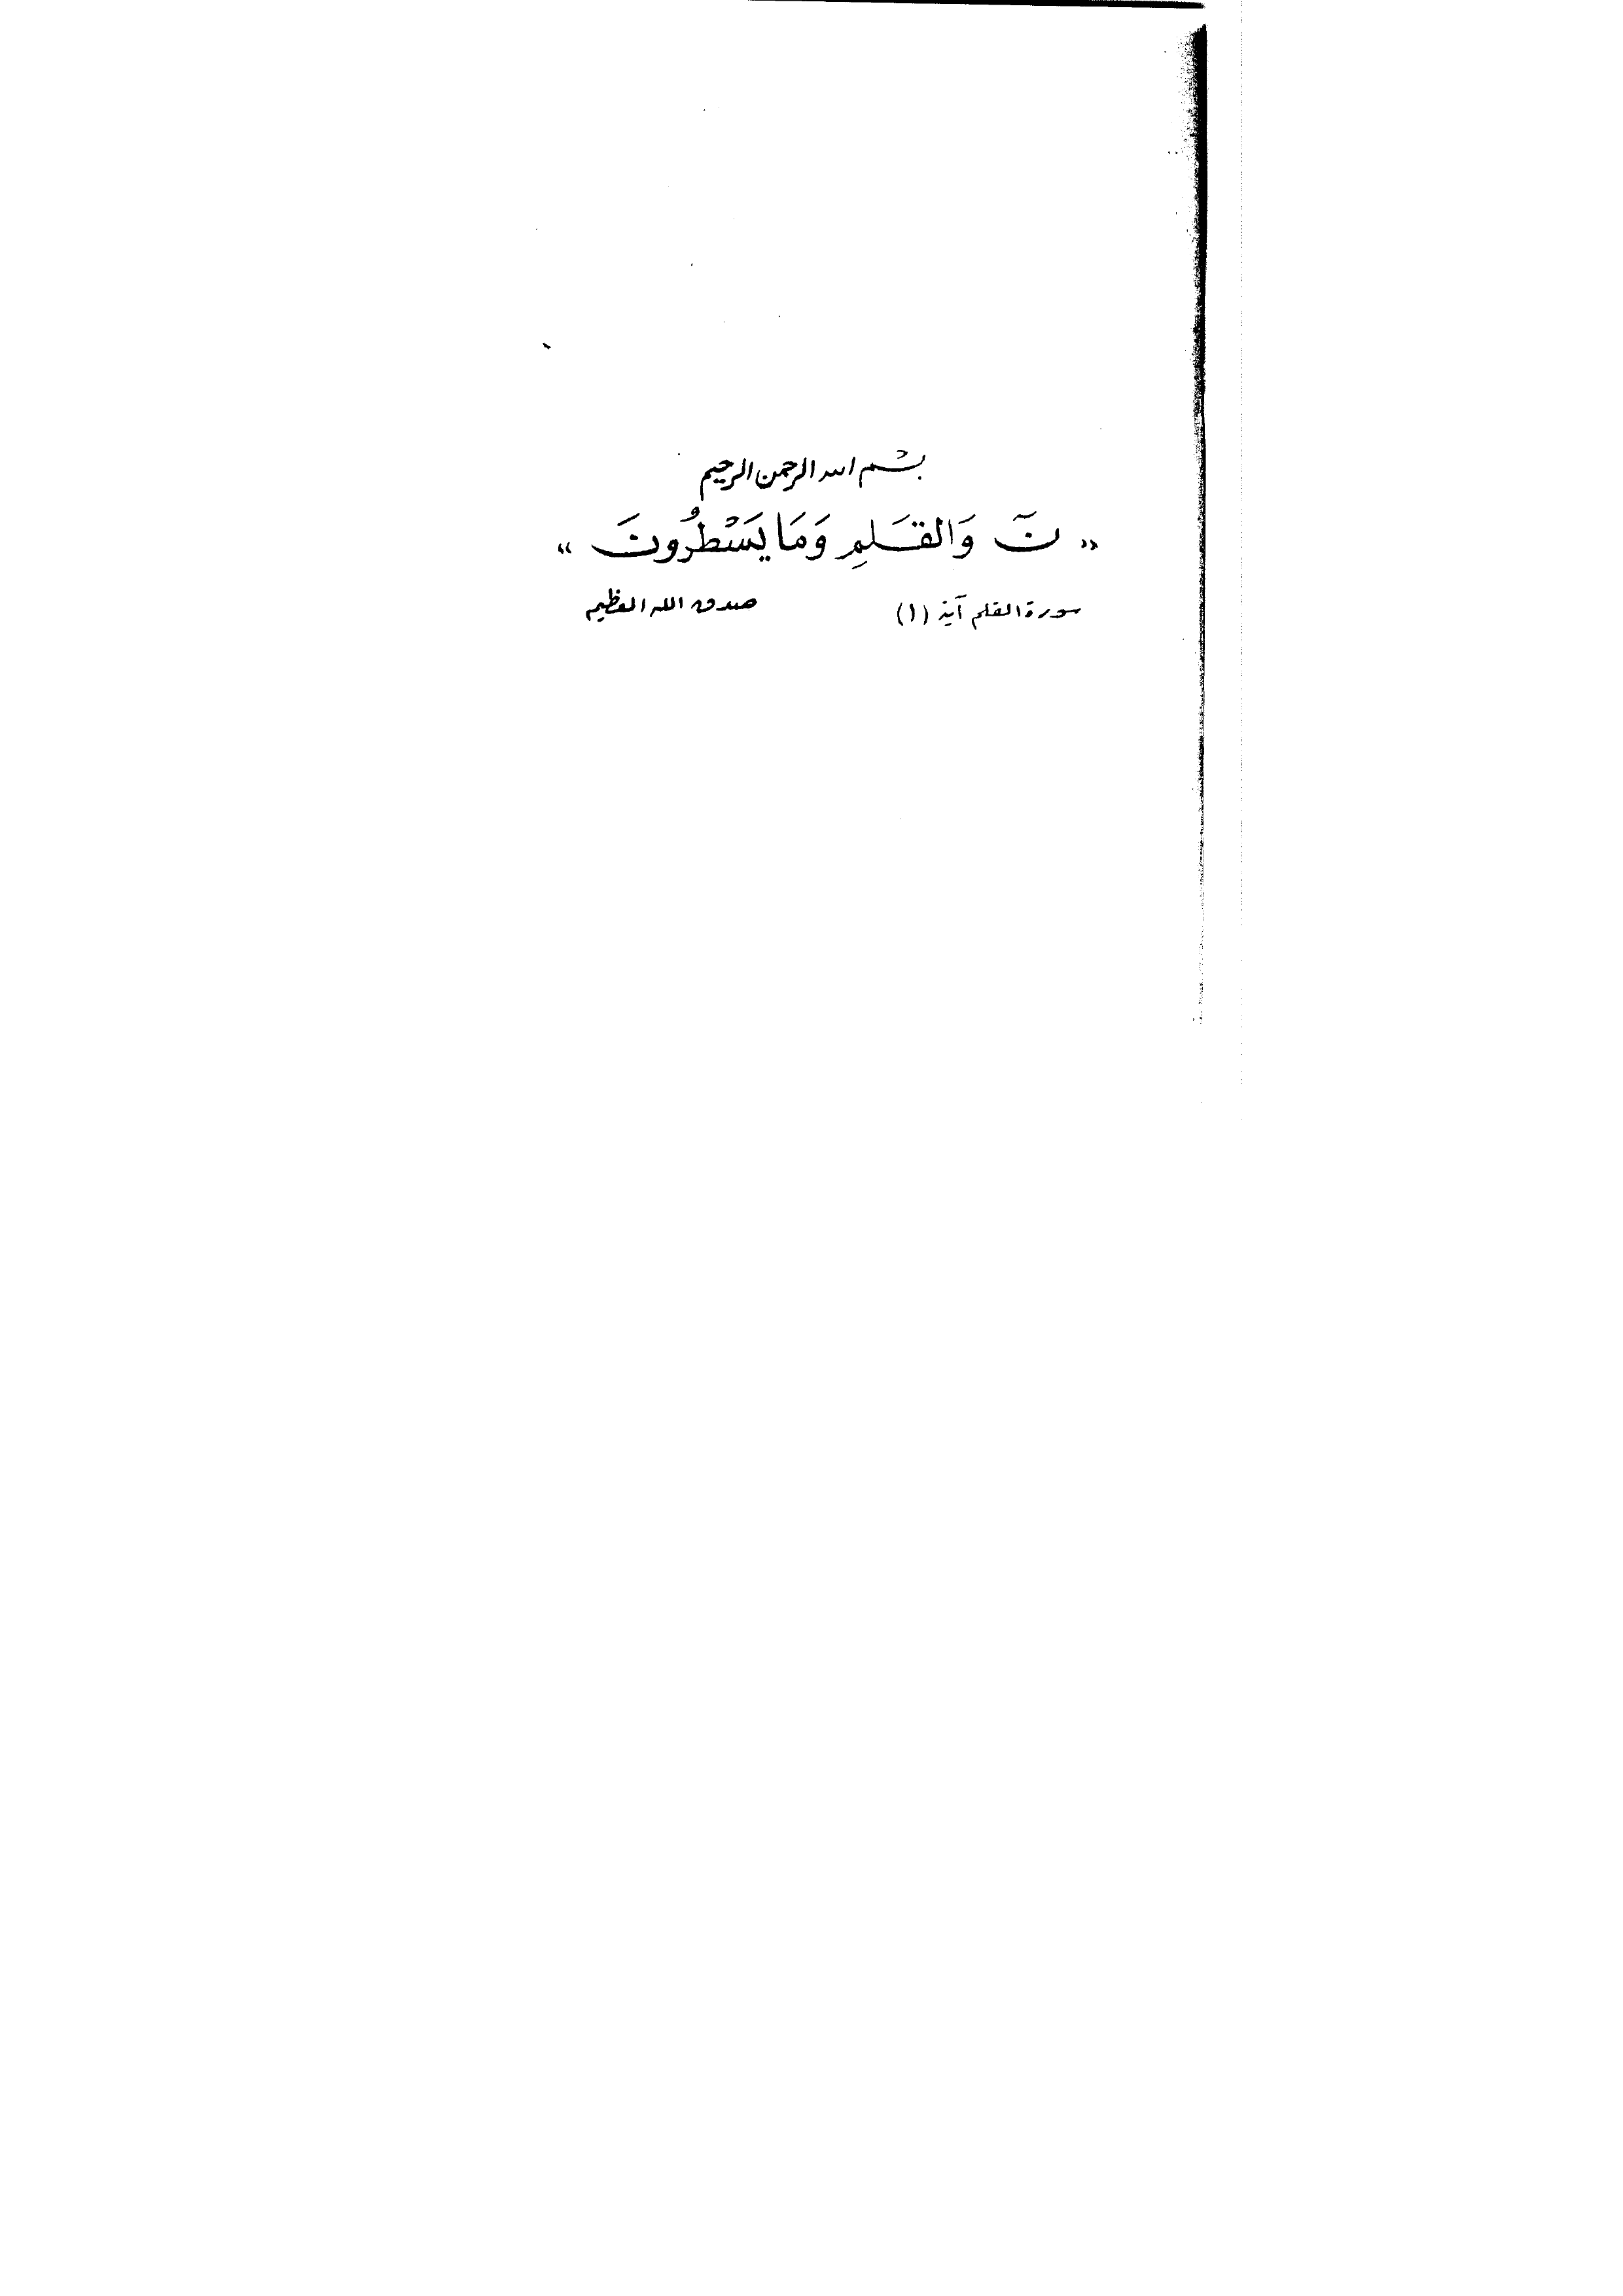 بسْم الله الرحمن الرحيم
« نَ وَالقَلَمِ وَمَا يَسْطُرُونَ »
سورة القلم آية (١) صدق الله العظيم